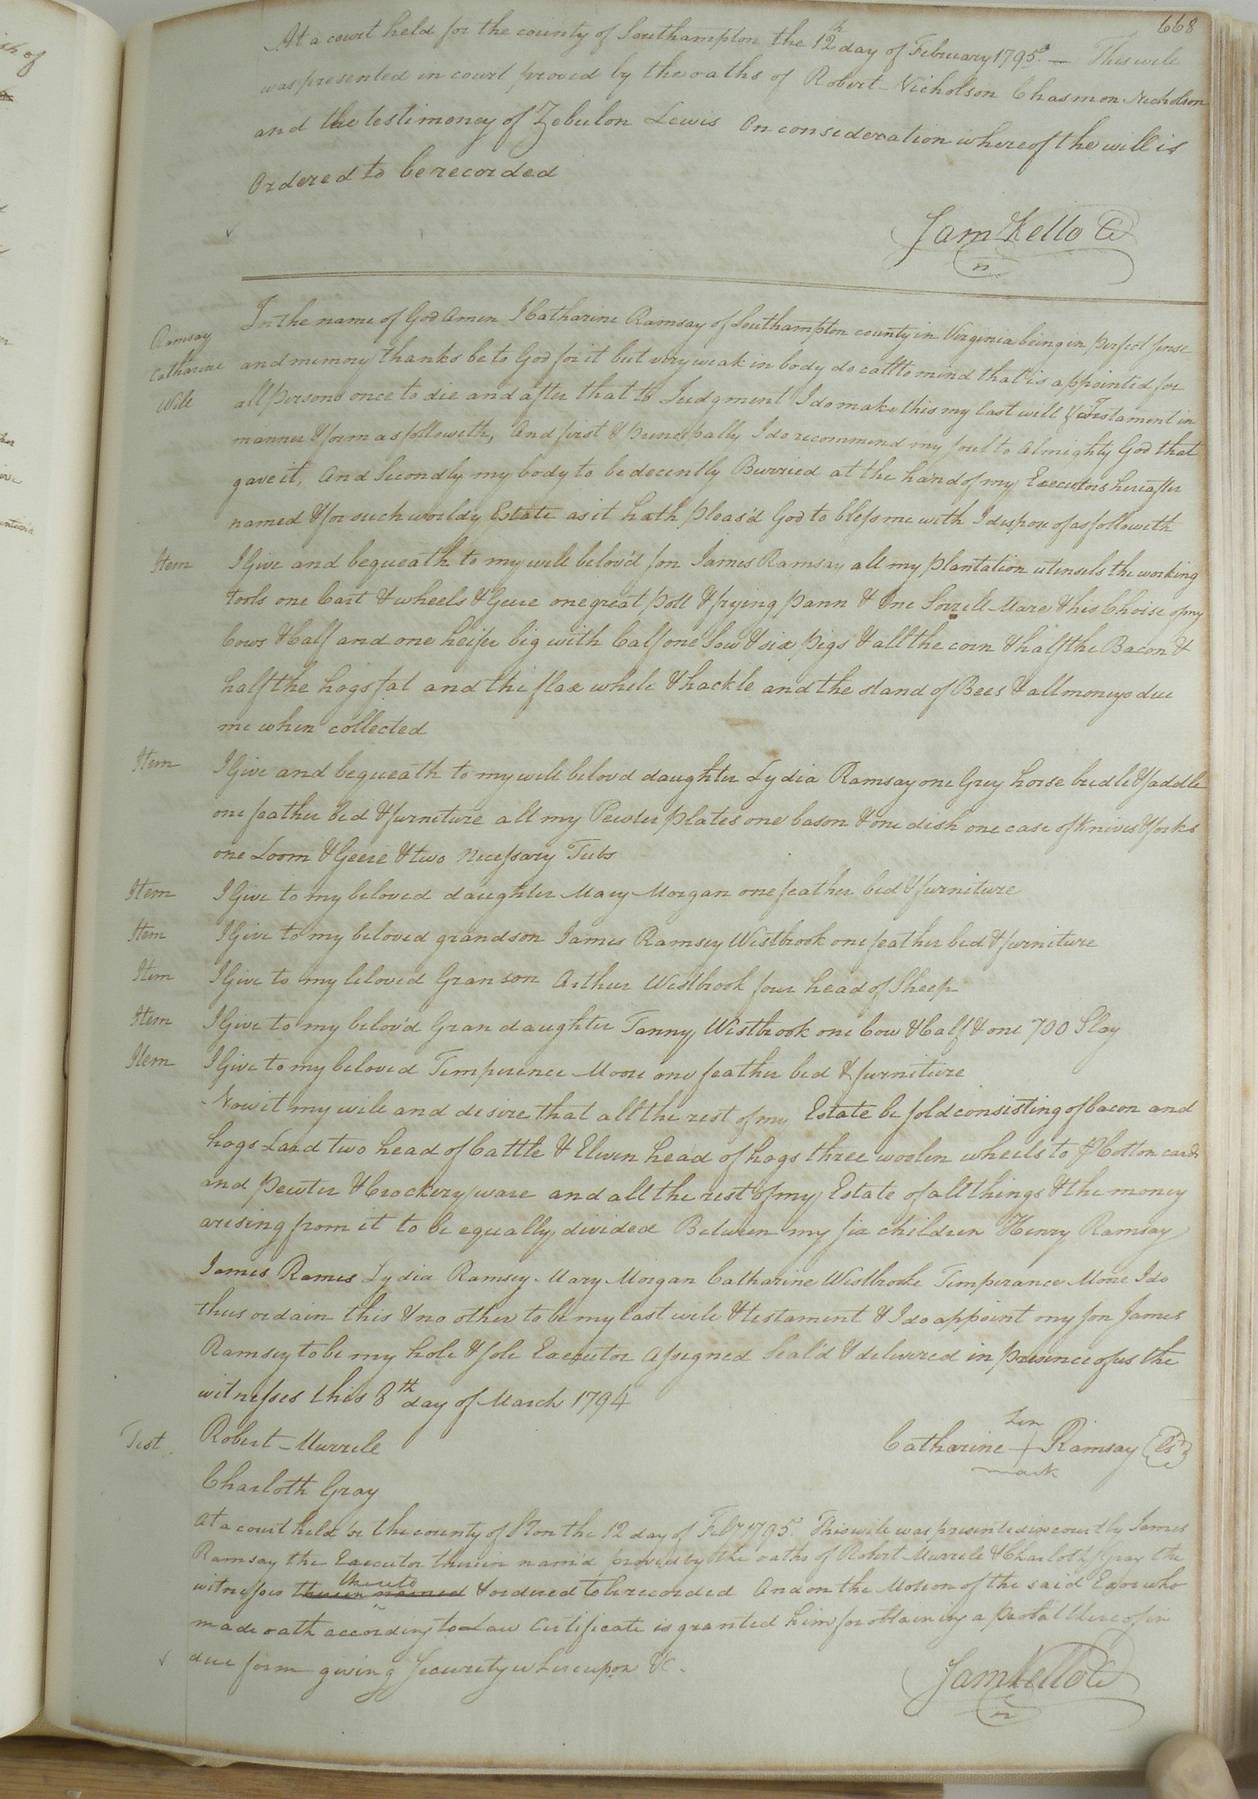 668
At a court held for the county of Southampton the 12th day of February 1795. — This will
was presented in court proved by the oaths of Robert Nicholson Chasmon Nicholson
and the testimoney of Zebulon Lewis On consideration whereof the will is
Ordered to be recorded
Sam Kello C
Ramsay
Catharine
Will
In the name of God Amen I Catharine Ramsay of Southampton county in Virginia being in perfect sense
and memory thanks be to God for it but very weak in body do call to mind that is appointed for
all persons once to die and after that to Judgment I do make this my last will & Testament in
manner & form as followeth, And first & Principally I do recommend my soul to Almighty God that
gave it, And Secondly my body to be decently Burried at the hand of my Executors hereafter
named & for such worldy Estate as it hath pleas'd God to bless me with I dispose of as followeth
Item I Give and bequeath to my well belov'd son James Ramsay all my plantation utensels the working
tools one Cart & wheels & Geere one great pott & frying pann & One Sorrell Mare & his Choise of my
Cows & Calf and one heifer big with Calf one Sow & six pigs & all the corn & half the Bacon &
half the hogs fat and the flax whele & hackle and the stand of Bees & all moneys due
me when collected
Item I Give and bequeath to my well belovd daughter Lydia Ramsay one Grey horse bridle & saddle
one feather bed & furniture all my Pewter plates one bason & one dish one case of Knives & forks
one Loom & Geere & two necessary Tubs
Item I Give to my beloved daughter Mary Morgan one feather bed & furniture
Item I Give to my beloved grandson James Ramsey Westbrook one feather bed & furniture
Item I Give to my beloved Granson Arthur Westbrook four head of Sheep
Item I Give to my belov'd Grandaughter Tanny Westbrook one Cow & Calf & one 700 Slay
Item I Give to my beloved Temperence Moore one feather bed & furniture
Now it my will and desire that all the rest of my Estate be sold consisting of bacon and
hogs Lard two head of Cattle & Eleven head of hogs three woolen wheels to pr Cotton cards
and Pewter & Crockery ware and all the rest of my Estate of all things & the money
arising from it to be equally divided Between my six children Henry Ramsay
James Rames Lydia Ramsey Mary Morgan Catharine Westbrooke Temperance More I do
thus ordain this & no other to be my last will & testament & I do appoint my son James
Ramsey to be my hole & sole Executor Assigned Seal'd & delivered in presence of us the
witnesses this 8th day of March 1794
Test. Robert Murrele
her
Catharine + Ramsay Ls
mark
Charloth Gray
At a court held for the county of Ston the 12 day of Feby 1795. This will was presented in court by James
Ramsay the Executor therein nam'd proved by the oaths of Robert Murrele & Charloth Gray the
witnesses therein named thereto & ordered to be recorded And on the Motion of the said Exor who
made oath according to Law Certificate is granted him for obtaining a probat thereof in
due form giving Security whereupon &c.
Sam Kello C